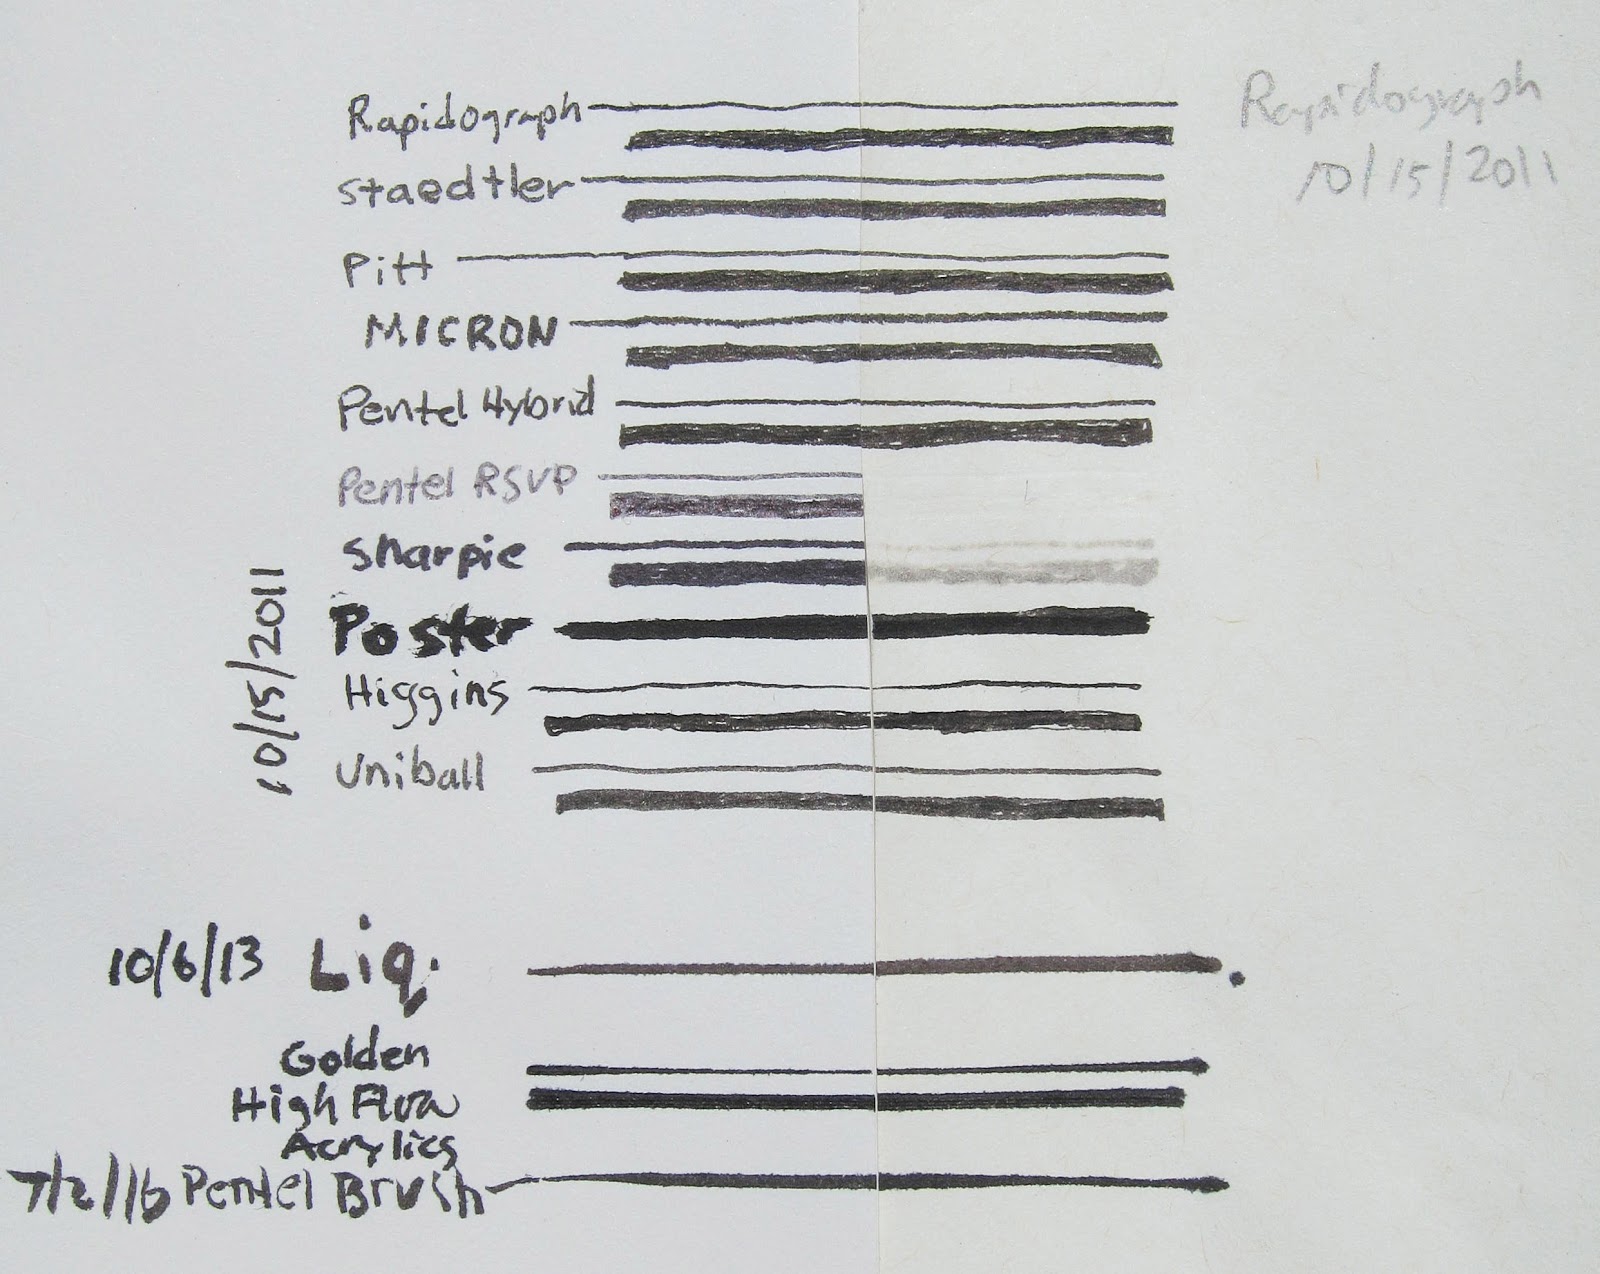 Rapidograph
Rapidograph
10/15/2011
Staedtler
Pitt
MICRON
Pentel Hybrid
Pentel RSVP
Sharpie
10/15/2011
Poster
Higgins
Uniball
10/6/13 Liq.
Golden
High Flow
Acrylics
7/2/16 Pentel Brush